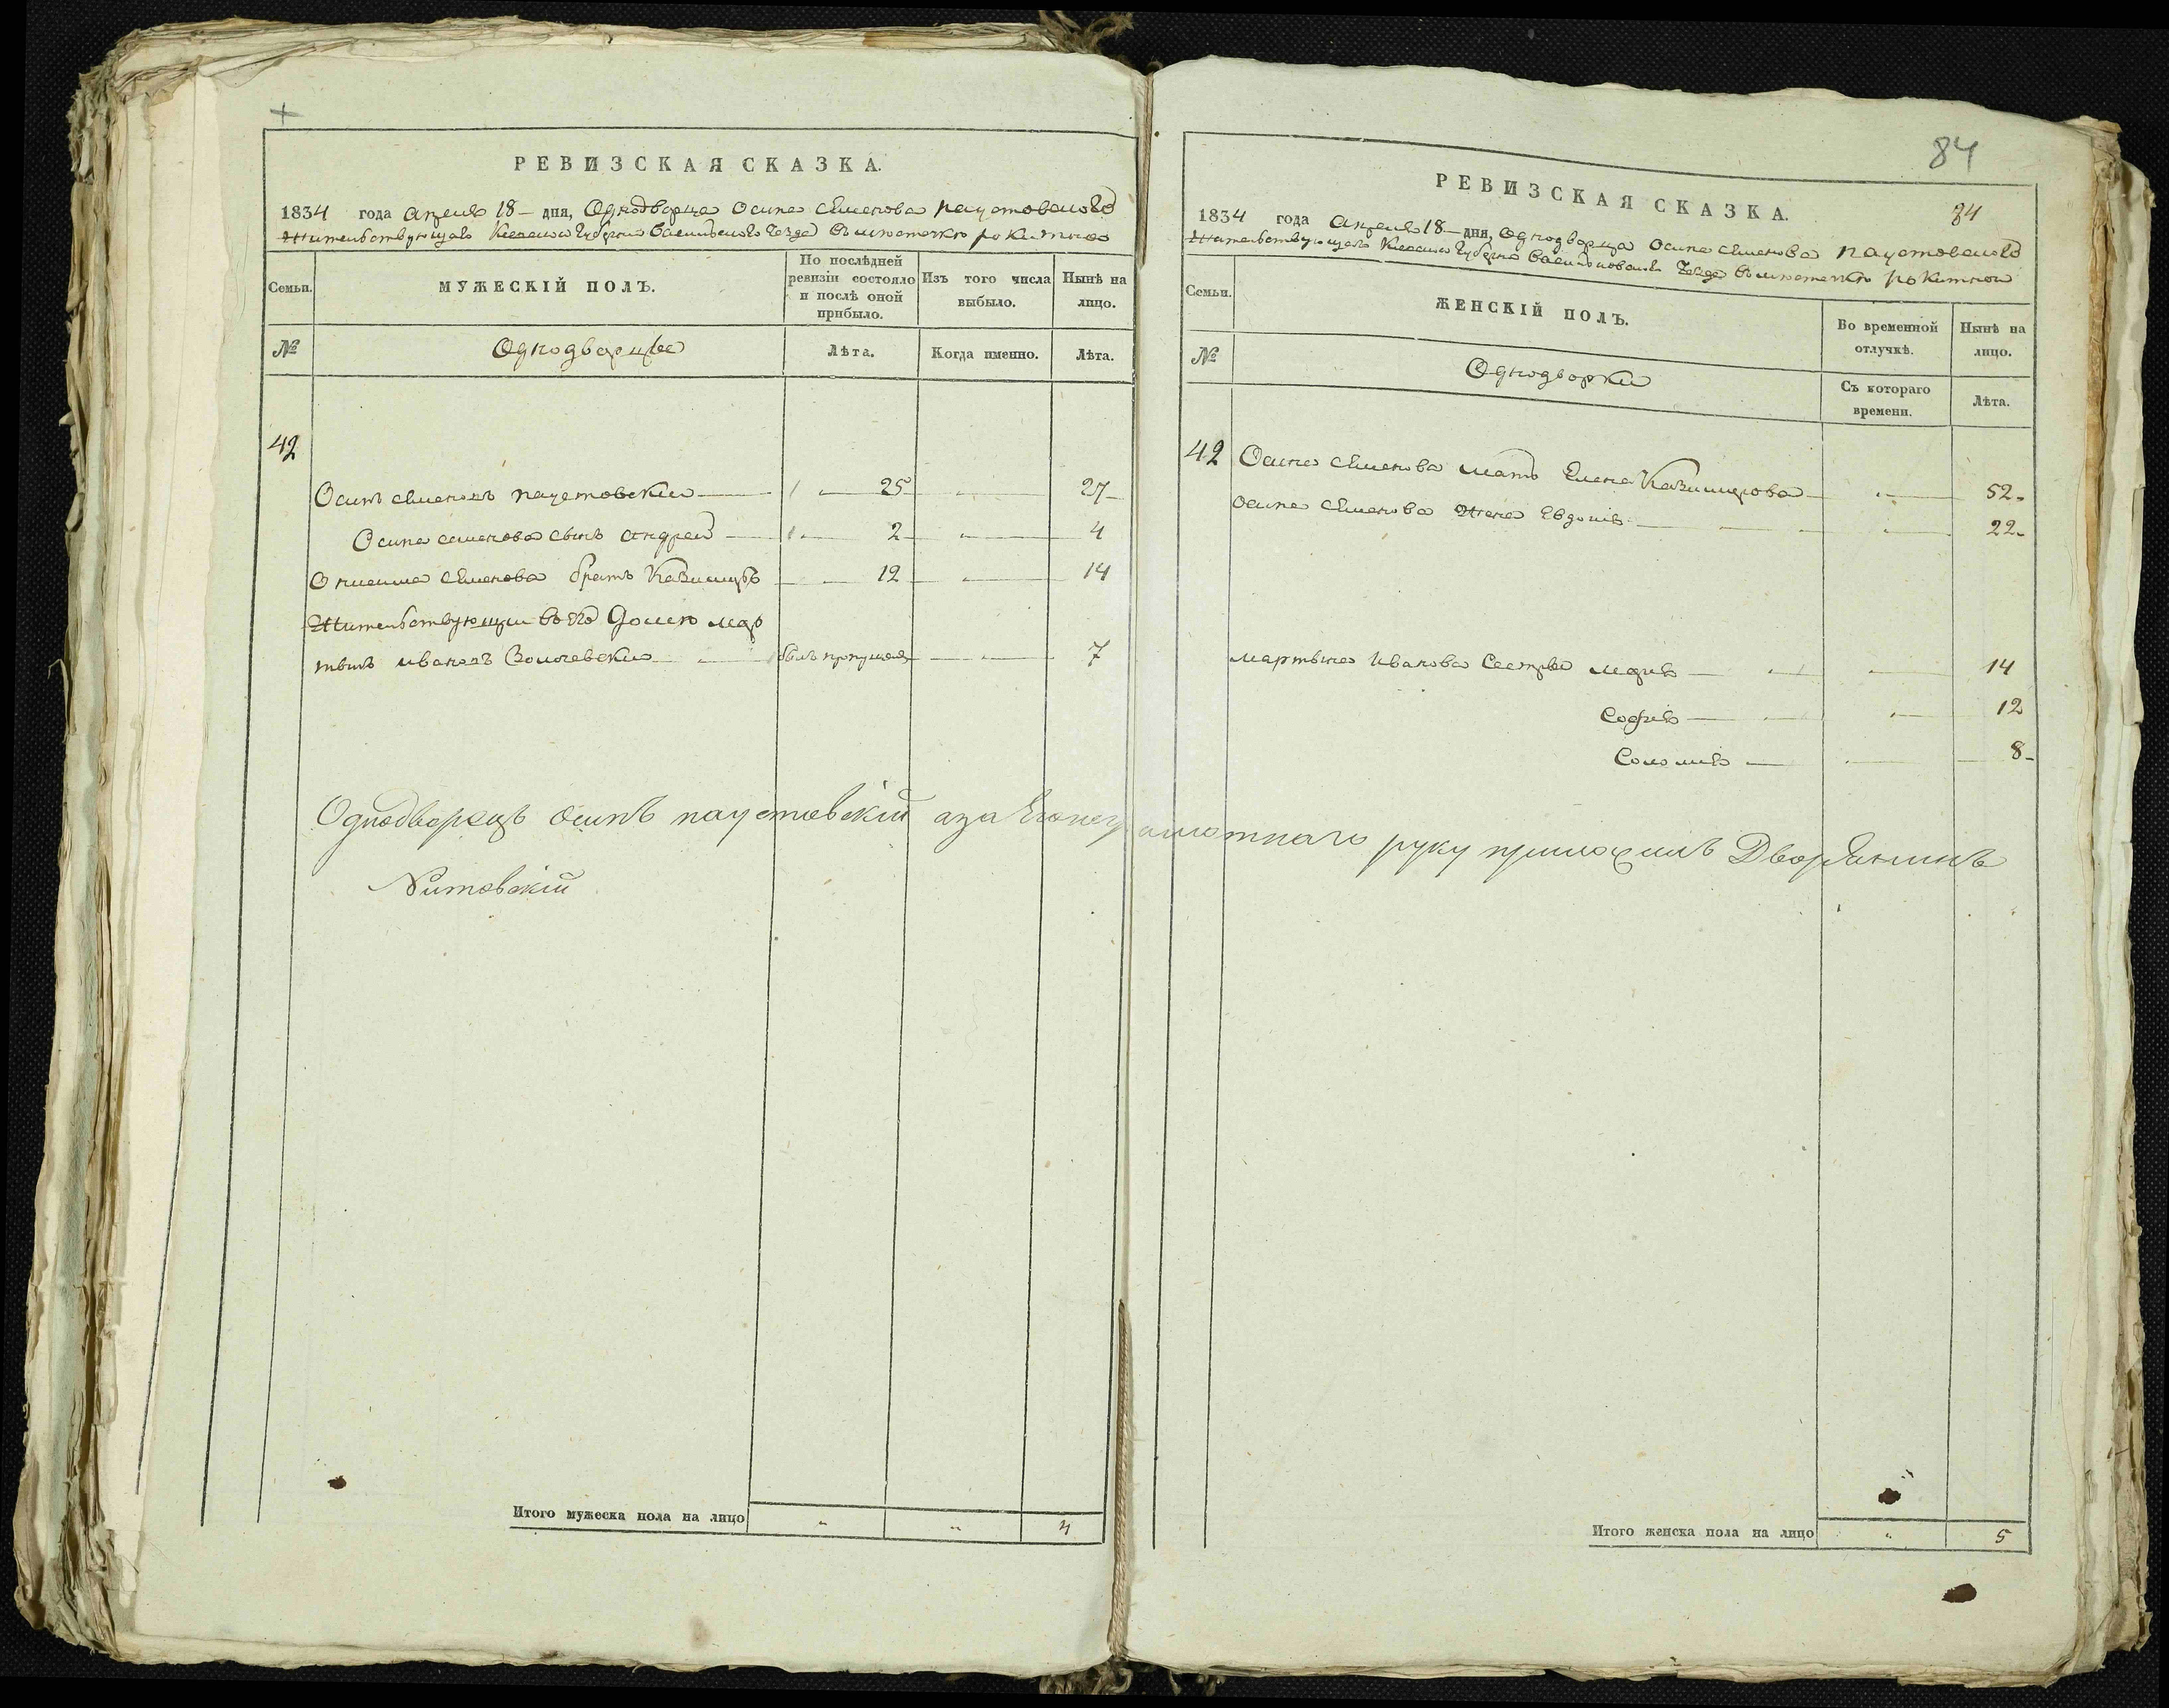 РЕВИЗСКАЯ СКАЗКА.
1834 года апреля 18 дня, Однодворца Осипа Семенова Паустовского
Жительствующего Киевской Губернии Васильковского Уезда въ местечкѣ Рокитной
Семьи.
МУЖЕСКІЙ ПОЛЪ.
По послѣдней ревизіи состояло и послѣ оной прибыло.
Изъ того числа выбыло.
Нынѣ на лицо.
№
Однодворцы
Лѣта.
Когда именно.
Лѣта.
42
Осипъ Семеновъ Паустовскій 25 27
Осипа Семенова сынъ Андрей 2 4
Семенова братъ Казимиръ 12 14
Жительствующий въ его Доме Мар
тынъ Ивановъ былъ пропущенъ 7
Однодворецъ Осипъ Паустовскій а за Его неграмотнаго руку приложилъ Дворянинъ
Итого мужеска пола на лицо " " 4
84
РЕВИЗСКАЯ СКАЗКА.
84
1834 года апреля 18 дня, Однодворца Осипа Семенова Паустовского
Жительствующего Киевской Губернии Васильковского Уезда въ местечкѣ Рокитной
Семьи.
ЖЕНСКІЙ ПОЛЪ.
Во временной отлучкѣ.
Нынѣ на лицо.
№
Однодворки
Съ котораго времени.
Лѣта.
42 Осипа Семенова мать Елена Казимирова 52
Осипа Семенова Жена Евдокия 22
Мартына Иванова Сестры Мария 14
София 12
Соломия 8
Итого женска пола на лицо " 5